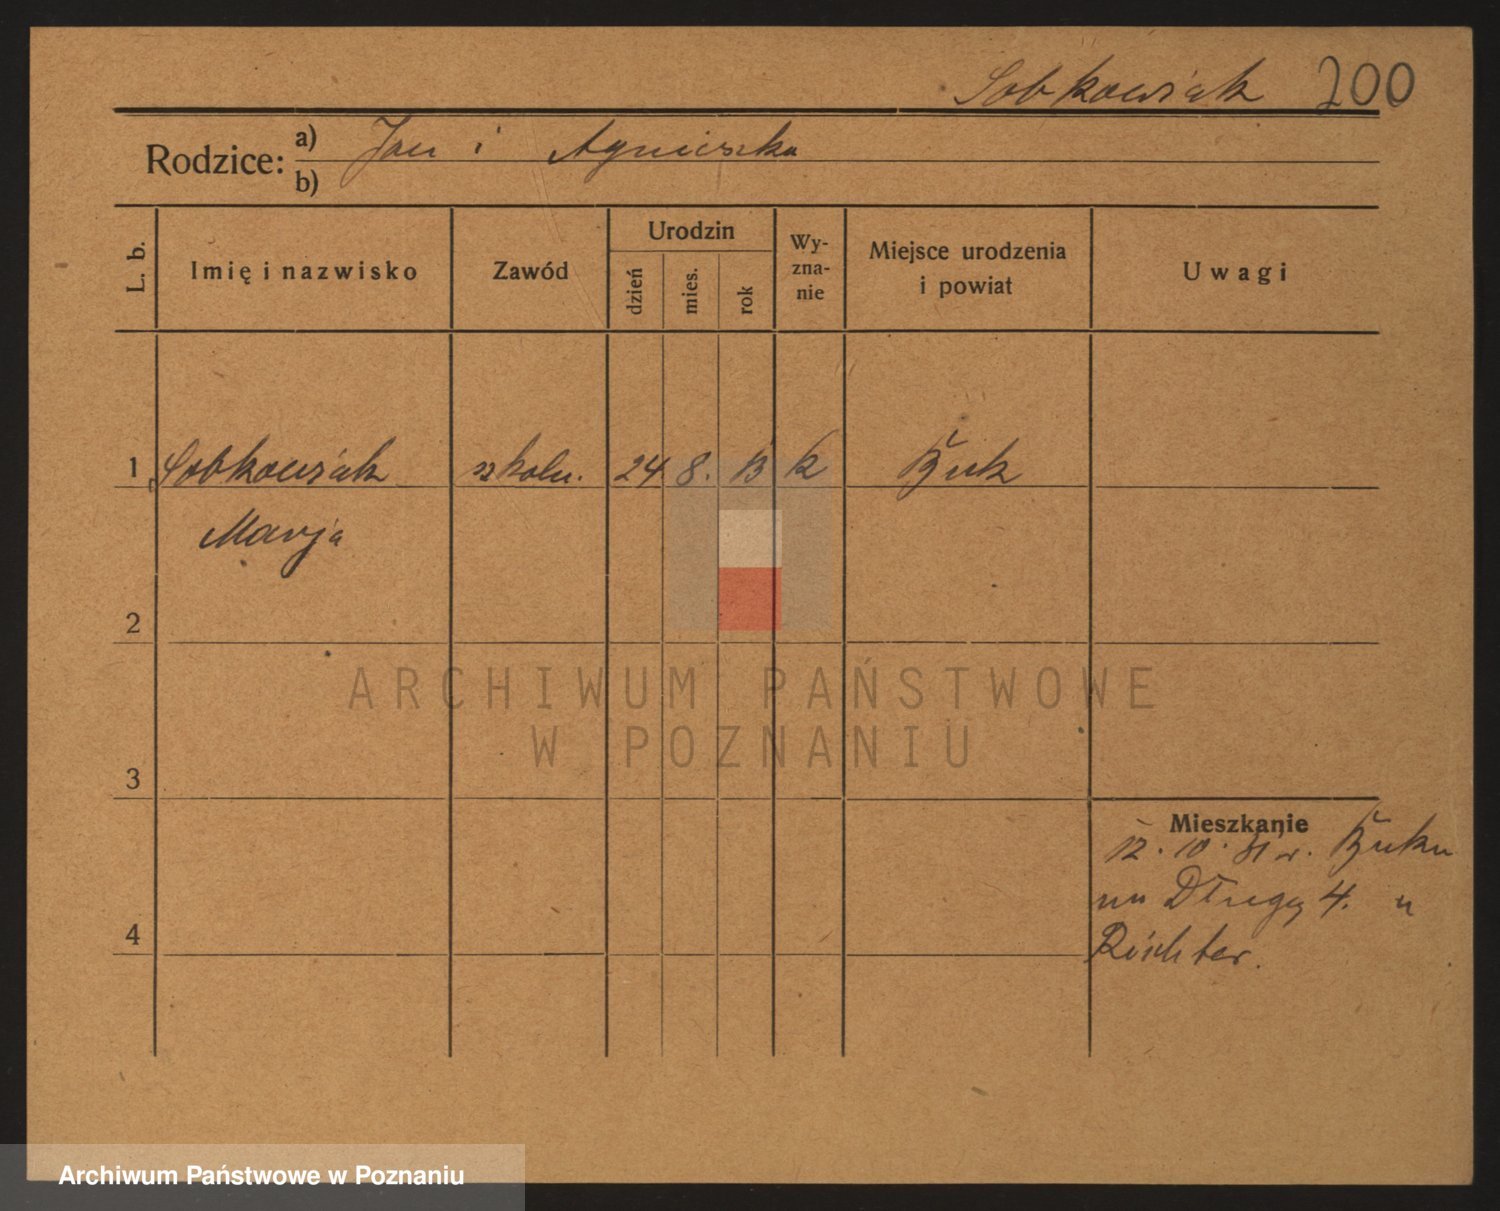 Sobkowiak 200
Rodzice: a) Jan i Agnieszka
b)
L. b. Imię i nazwisko Zawód Urodzin dzień mies. rok Wy-zna-nie Miejsce urodzenia i powiat Uwagi
1 Sobkowiak szkoln. 24 8. 13 k Buk
Marja
2
ARCHIWUM PAŃSTWOWE
W POZNANIU
3
Mieszkanie
12. 10. 31 r. Buku
na Długiej 4. u
4
Richter.
Archiwum Państwowe w Poznaniu